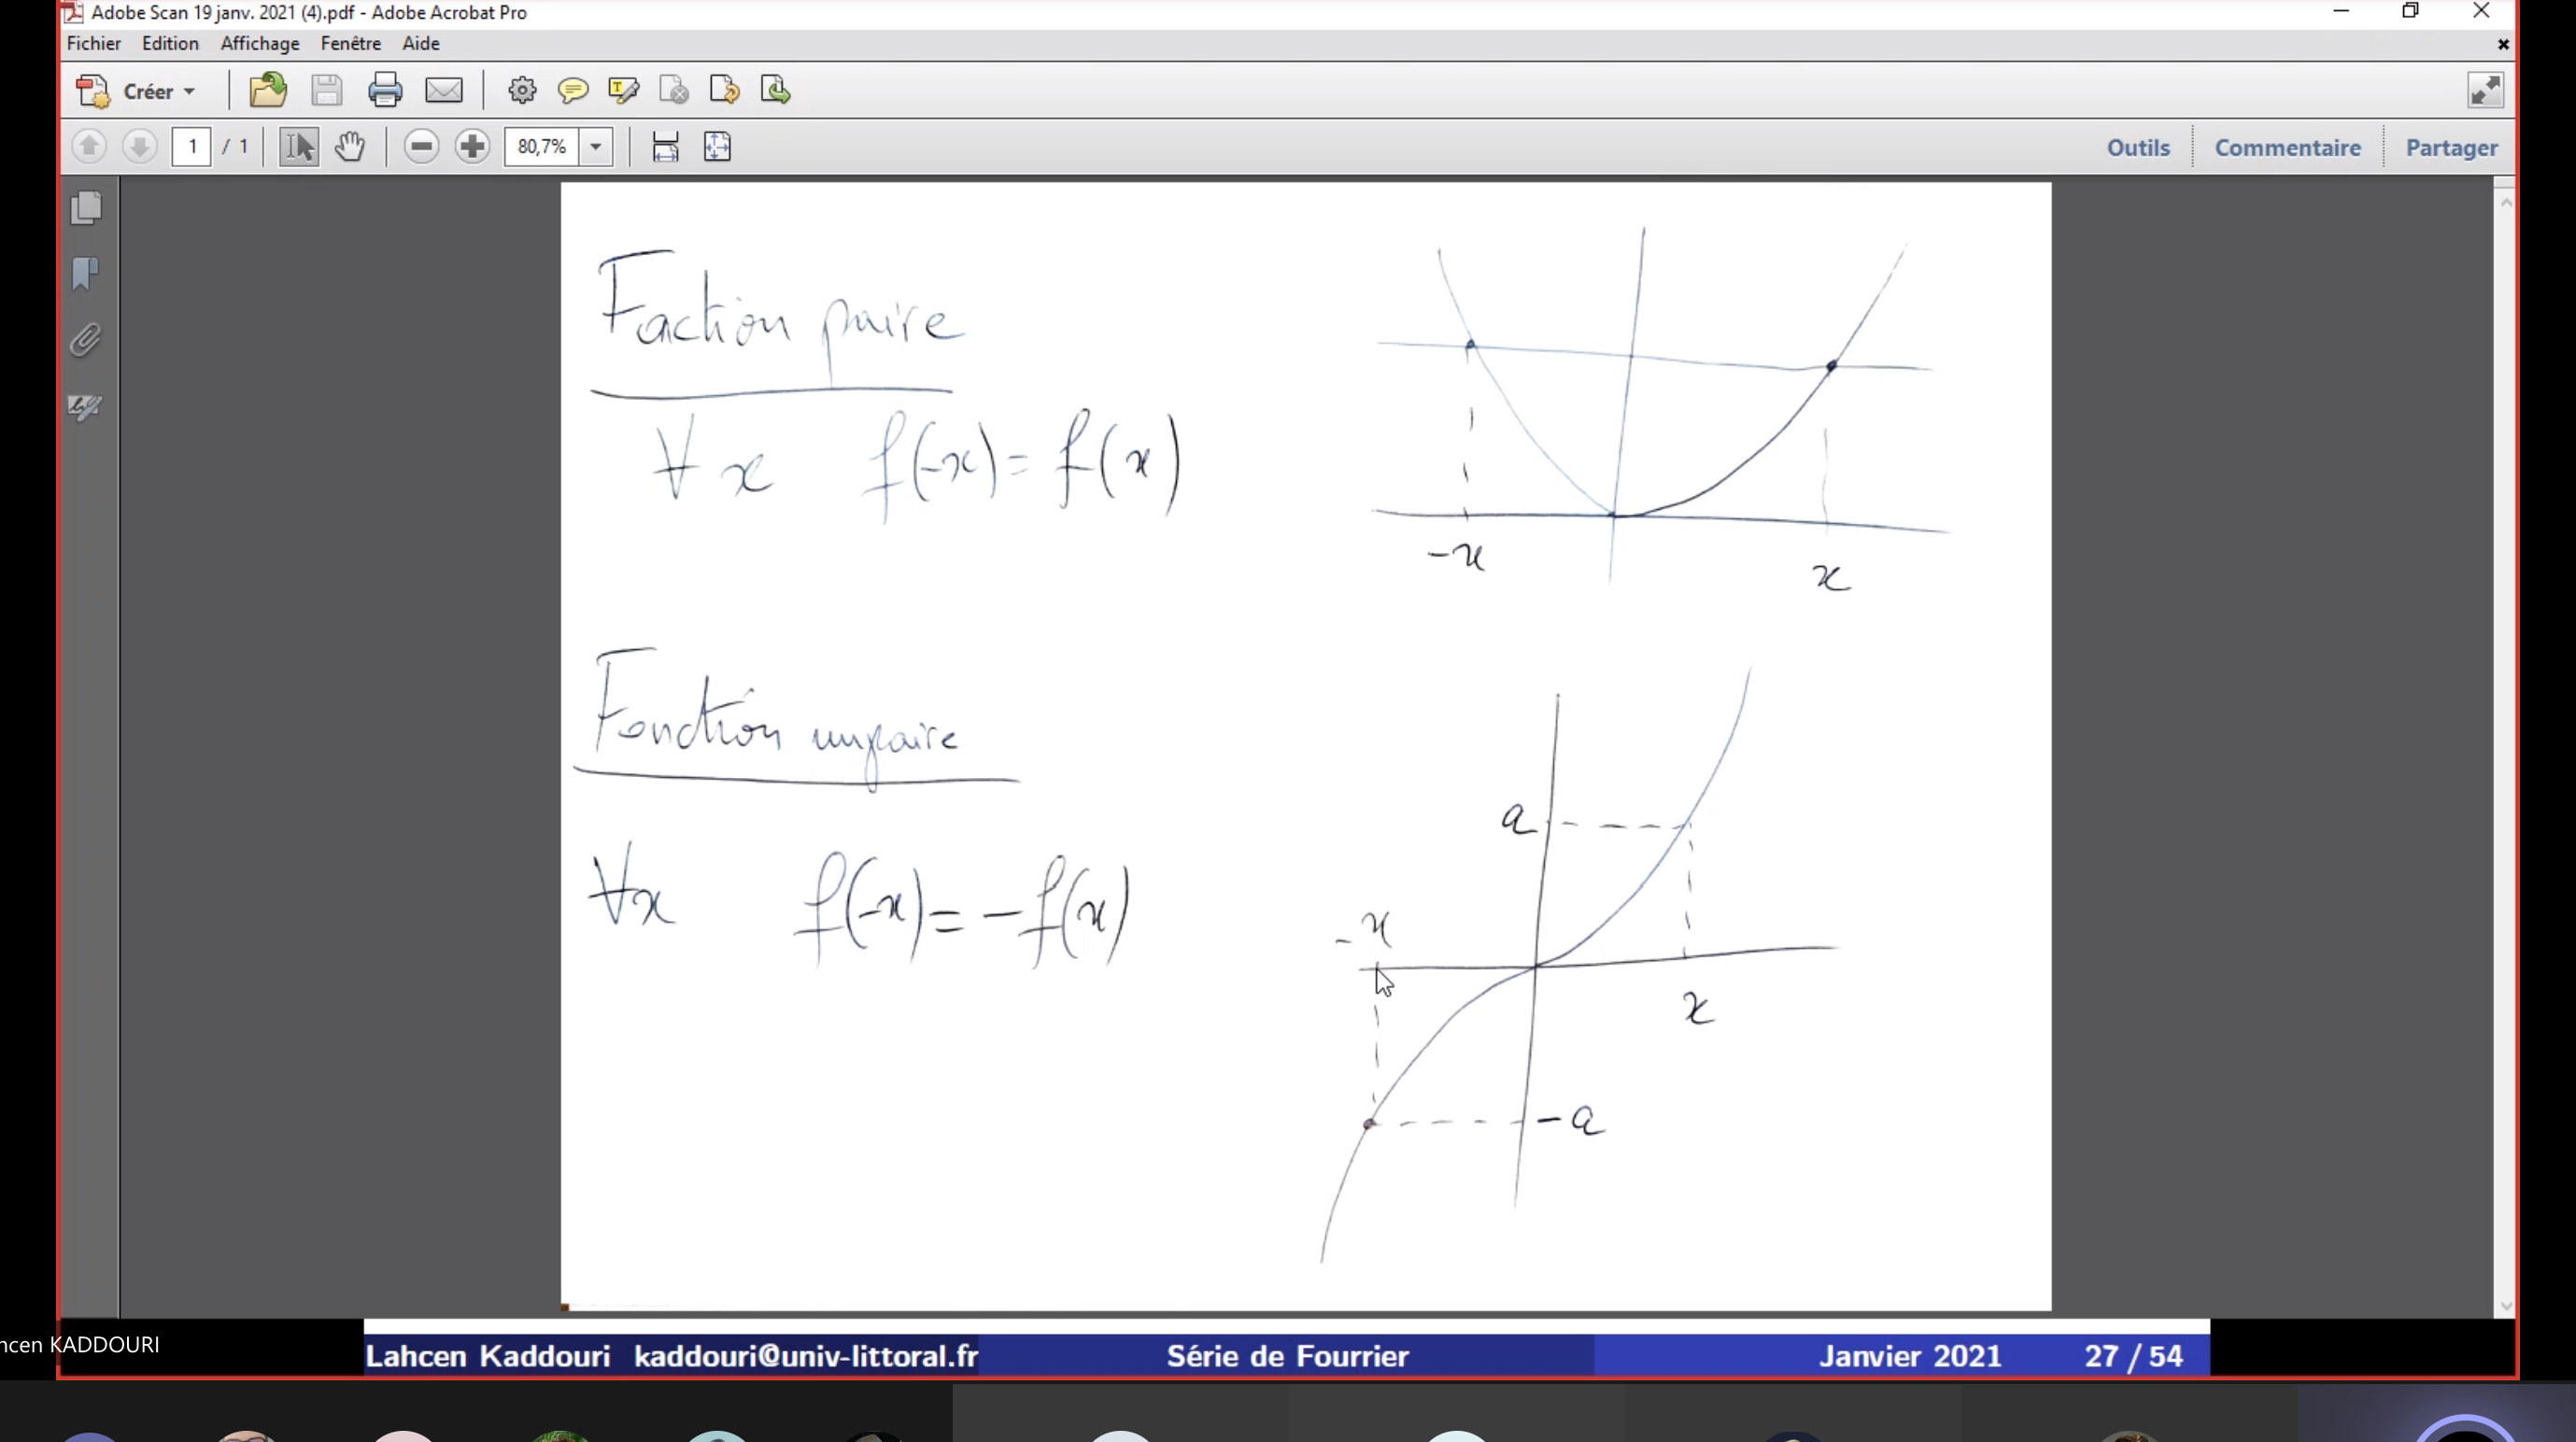 Adobe Scan 19 janv. 2021 (4).pdf - Adobe Acrobat Pro
Fichier Edition Affichage Fenêtre Aide
Créer
1 / 1 80,7% Outils Commentaire Partager
Faction paire
∀ x f(-x) = f(x)
-x
x
Fonction impaire
∀x f(-x) = -f(x)
a
-x
x
-a
ncen KADDOURI
Lahcen Kaddouri kaddouri@univ-littoral.fr Série de Fourrier Janvier 2021 27 / 54